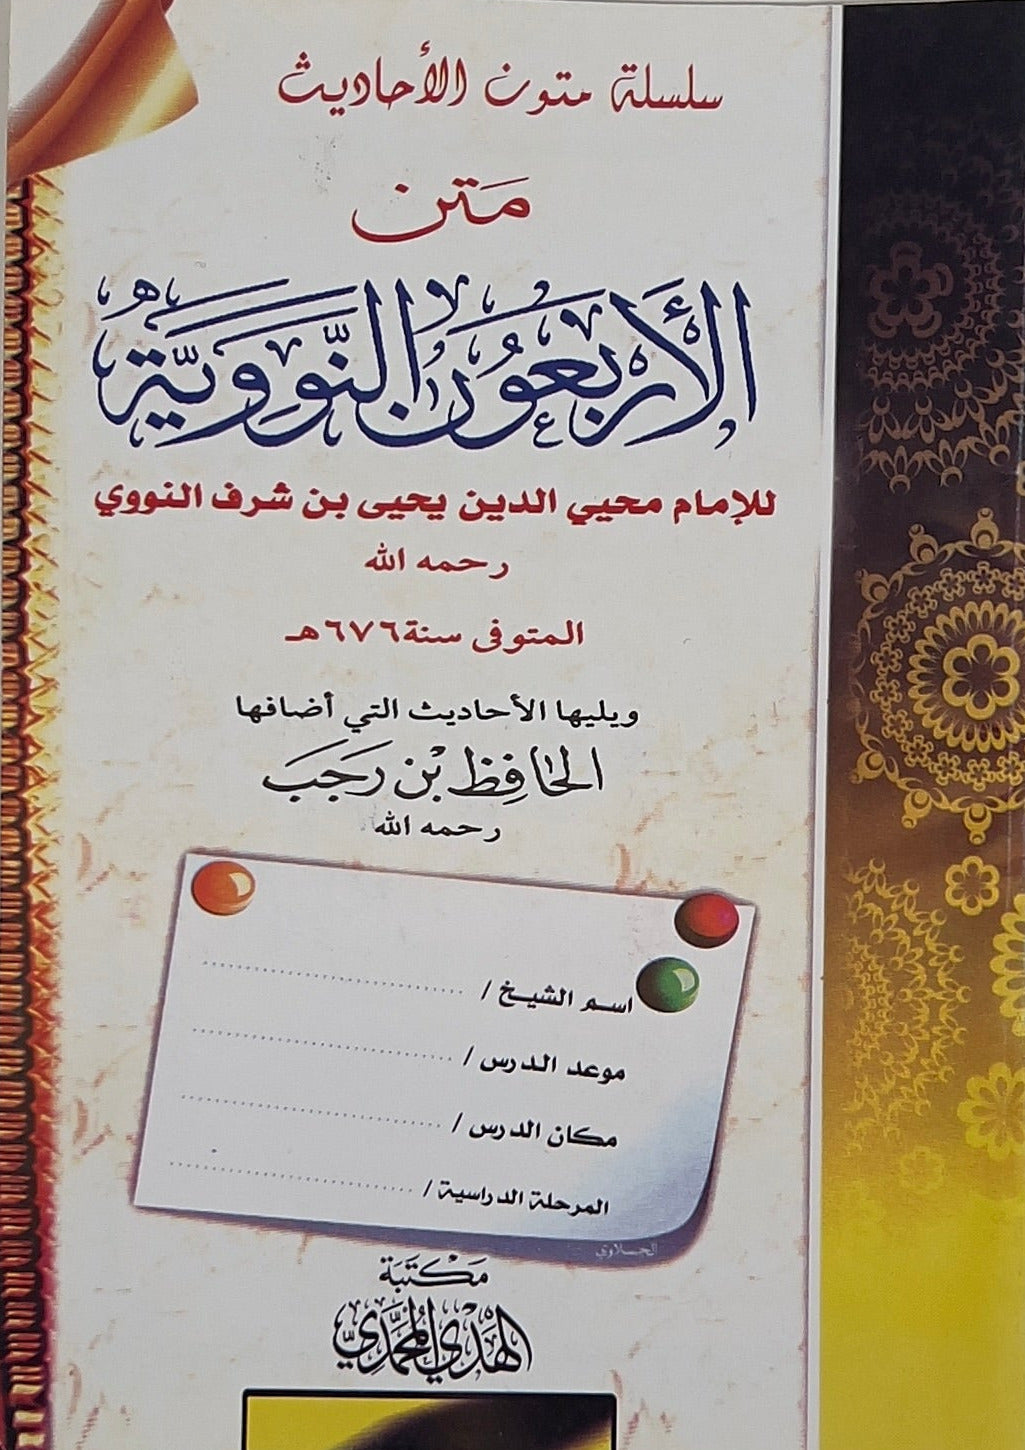 سلسلة متون الأحاديث
مَتن
الأَربعُون النَّوَوِيَّة
للإمام محيي الدين يحيى بن شرف النووي
رحمه الله
المتوفى سنة ٦٧٦هـ
ويليها الأحاديث التي أضافها
الحَافِظ بْن رَجَبَ
رحمه الله
اسم الشيخ /
موعد الدرس /
مكان الدرس /
المرحلة الدراسية /
الحسلاوي
مَكْتَبَة
الهَدْي المُحَمَّدِي